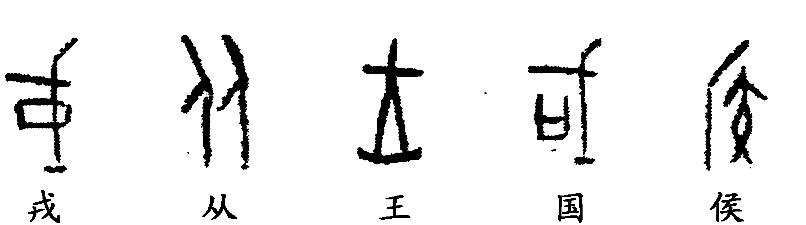 戎 从 王 国 侯